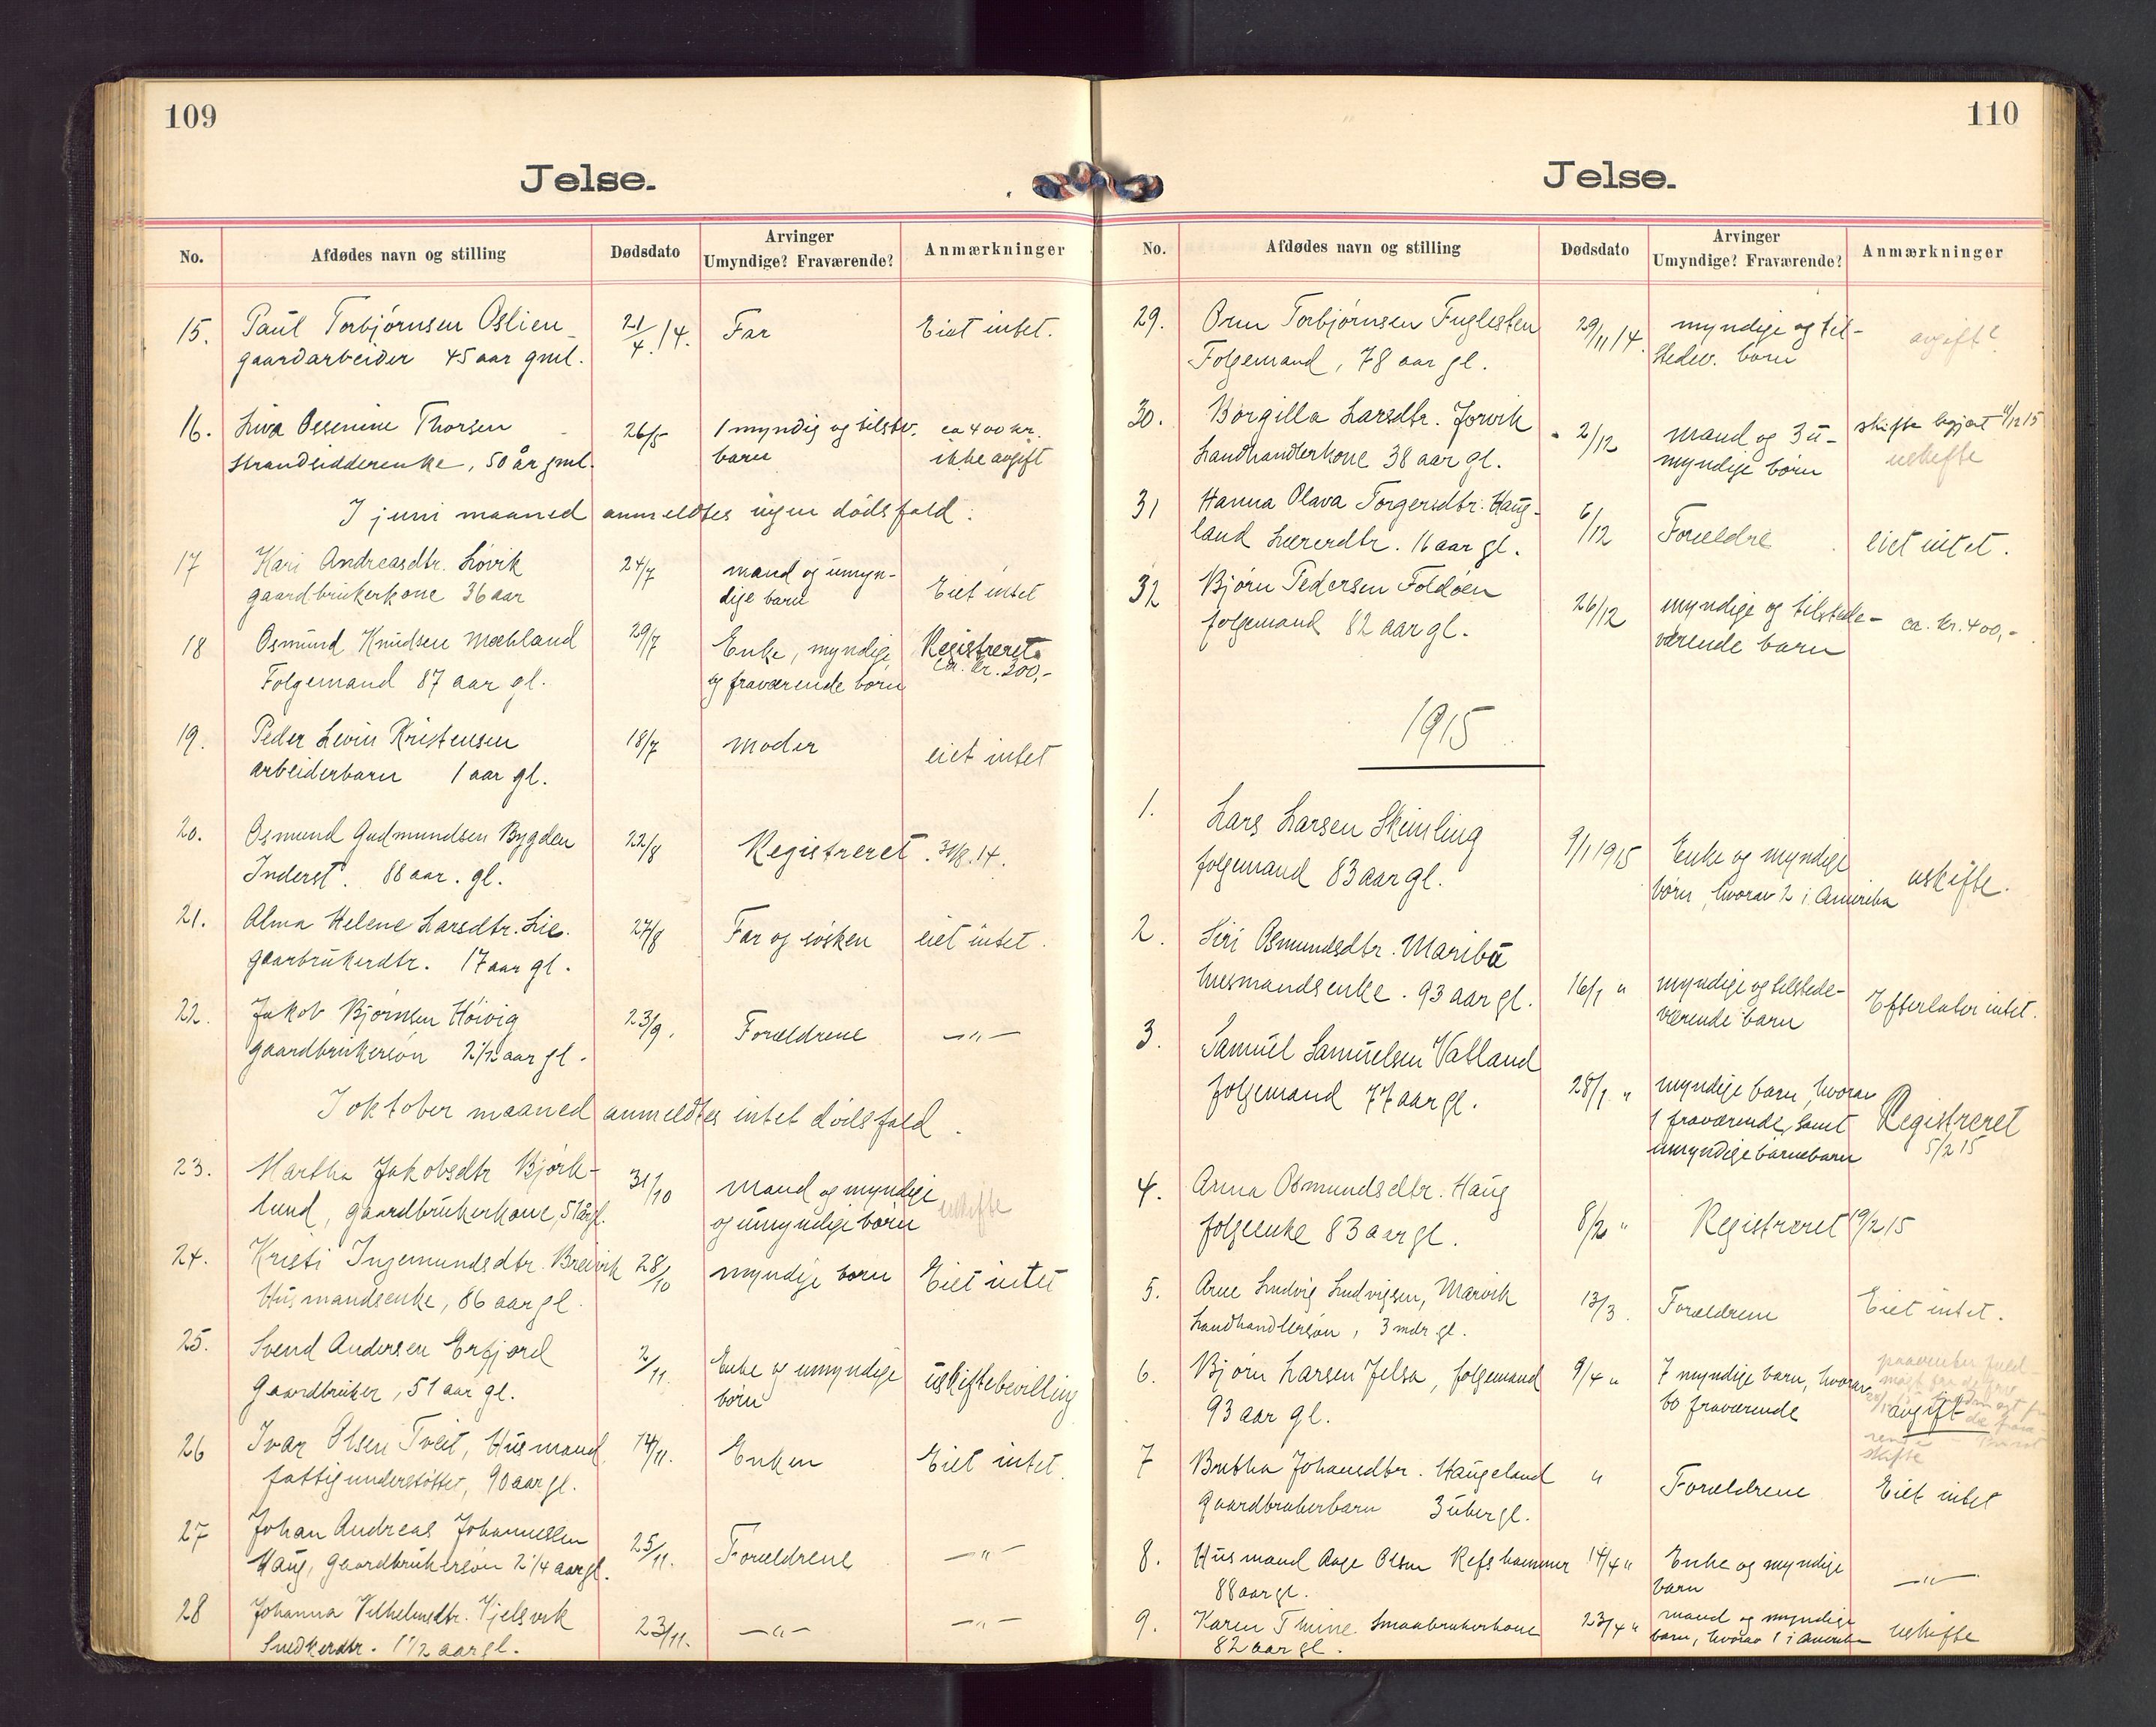 109
Jelse.
No. Afdødes navn og stilling Dødsdato Arvinger Umyndige? Fraværende? Anmærkninger
15. Paul Torbjørnsen Oslien 21/4.14. Far Eiet intet.
gaardarbeider 45 aar gml.
16. Liva Ossenine Thorsen 26/5 1 myndig og tilstev. ca 400 kr.
strandsidderenke, 50 år gml. barn ikke avgift
I juni maaned anmeldtes ingen dödsfald.
17 Kari Andreasdtr. Løvik 24/7 mand og umyn-
gaardbrukerkone 36 aar dige barn Eiet intet
18 Osmund Knudsen Mæhland 29/7 Enke, myndige Registreret
Folgemand 87 aar gl. og fraværende born ca. kr. 300,-
19. Peder Levin Kristensen 18/7 moder eiet intet
arbeiderbarn 1 aar gl.
20. Osmund Gudmundsen Bygden 22/8 Registreret 31/8.14.
Inderst. 88 aar. gl.
21. Alma Helene Larsdtr. Lie. 27/8 Far og søsken eiet intet.
gaarbrukerdtr. 17 aar gl.
22. Jakob Bjørnsen Høivig 23/9. Forældrene —"—
gaardbrukersøn 2 1/2 aar gl.
I oktober maaned anmeldtes intet dödsfald.
23. Martha Jakobsdtr Bjørk- 31/10 mand og myndige uskifte
lund, gaardbrukerkone, 51 år gl. og umyndige børn
24. Kristi Ingemundsdtr. Breivik 28/10 myndige born Eiet intet
Husmandsenke, 86 aar gl.
25. Svend Andersen Erfjord 2/11. Enke og umyndige uskiftebevilling
Gaardbruker, 51 aar gl. børn
26 Ivar Olsen Tveit, Husmand, 14/11. Enken Eiet intet.
fattigunderstøttet, 90 aar gl.
27 Johan Andreas Johannessen 25/11. Forældrene —"—
Haug, Gaardbrukersøn 2 1/4 aar gl.
28 Johanna Vilhelmsdtr. Hjelsvik 23/11. —"— —"—
Snedkerdtr. 1 1/2 aar gl.
110
Jelse.
No. Afdødes navn og stilling Dødsdato Arvinger Umyndige? Fraværende? Anmærkninger
29. Orm Torbjørnsen Fuglesten 29/11 14. myndige og til- avgift?
Folgemand, 78 aar gl. stedev. barn
30. Borgilla Larsdtr. Jorvik 2/12 mand og 3 u- skifte begjært 11/12 15
Landhandlerkone 38 aar gl. myndige börn uskifte
31 Hanna Olava Torgersdtr. Haug- 6/12 Forældre eiet intet.
land Lærerdtr. 16 aar gl.
32 Bjørn Pedersen Foldøen 26/12 myndige og tilstede- ca. kr. 400,-
folgemand 82 aar gl. værende barn
1915
1. Lars Larsen Skimling 9/1 1915 Enke og myndige uskifte.
folgemand 83 aar gl. börn, hvorav 2 i Amerika
2. Siri Osmundsdtr. Maribå 16/1 " myndige og tilstede- Efterlater intet.
husmandsenke. 93 aar gl. værende barn
3. Samuel Samuelsen Vatland 28/1 " myndige barn, hvorav Registreret
folgemand 77 aar gl. 1 fraværende, samt 5/2 15
umyndige barnebarn
4. Anna Osmundsdtr. Haug 8/2 " Registreret 19/2 15
folgeenke 83 aar gl.
5. Arne Ludvig Ludvigsen, Marvik 13/3. Forældrene Eiet intet.
Landhandlersøn, 3 mdr gl.
6. Bjørn Larsen Jelsa, folgemand 9/4 " 7 myndige barn, hvorav
93 aar gl. to fraværende avgift
skifte
7 Bertha Johansdtr. Haugeland " Forældrene Eiet intet
Gaardbrukerbarn 3 uker gl.
8. Husmand Aage Olsen Refshammer 14/4 " Enke og myndige —"—
88 aar gl. barn
9. Karen Thine. Smaabrukerkone 23/4 " mand og myndige uskifte
82 aar gl. barn, hvorav 1 i Amerika